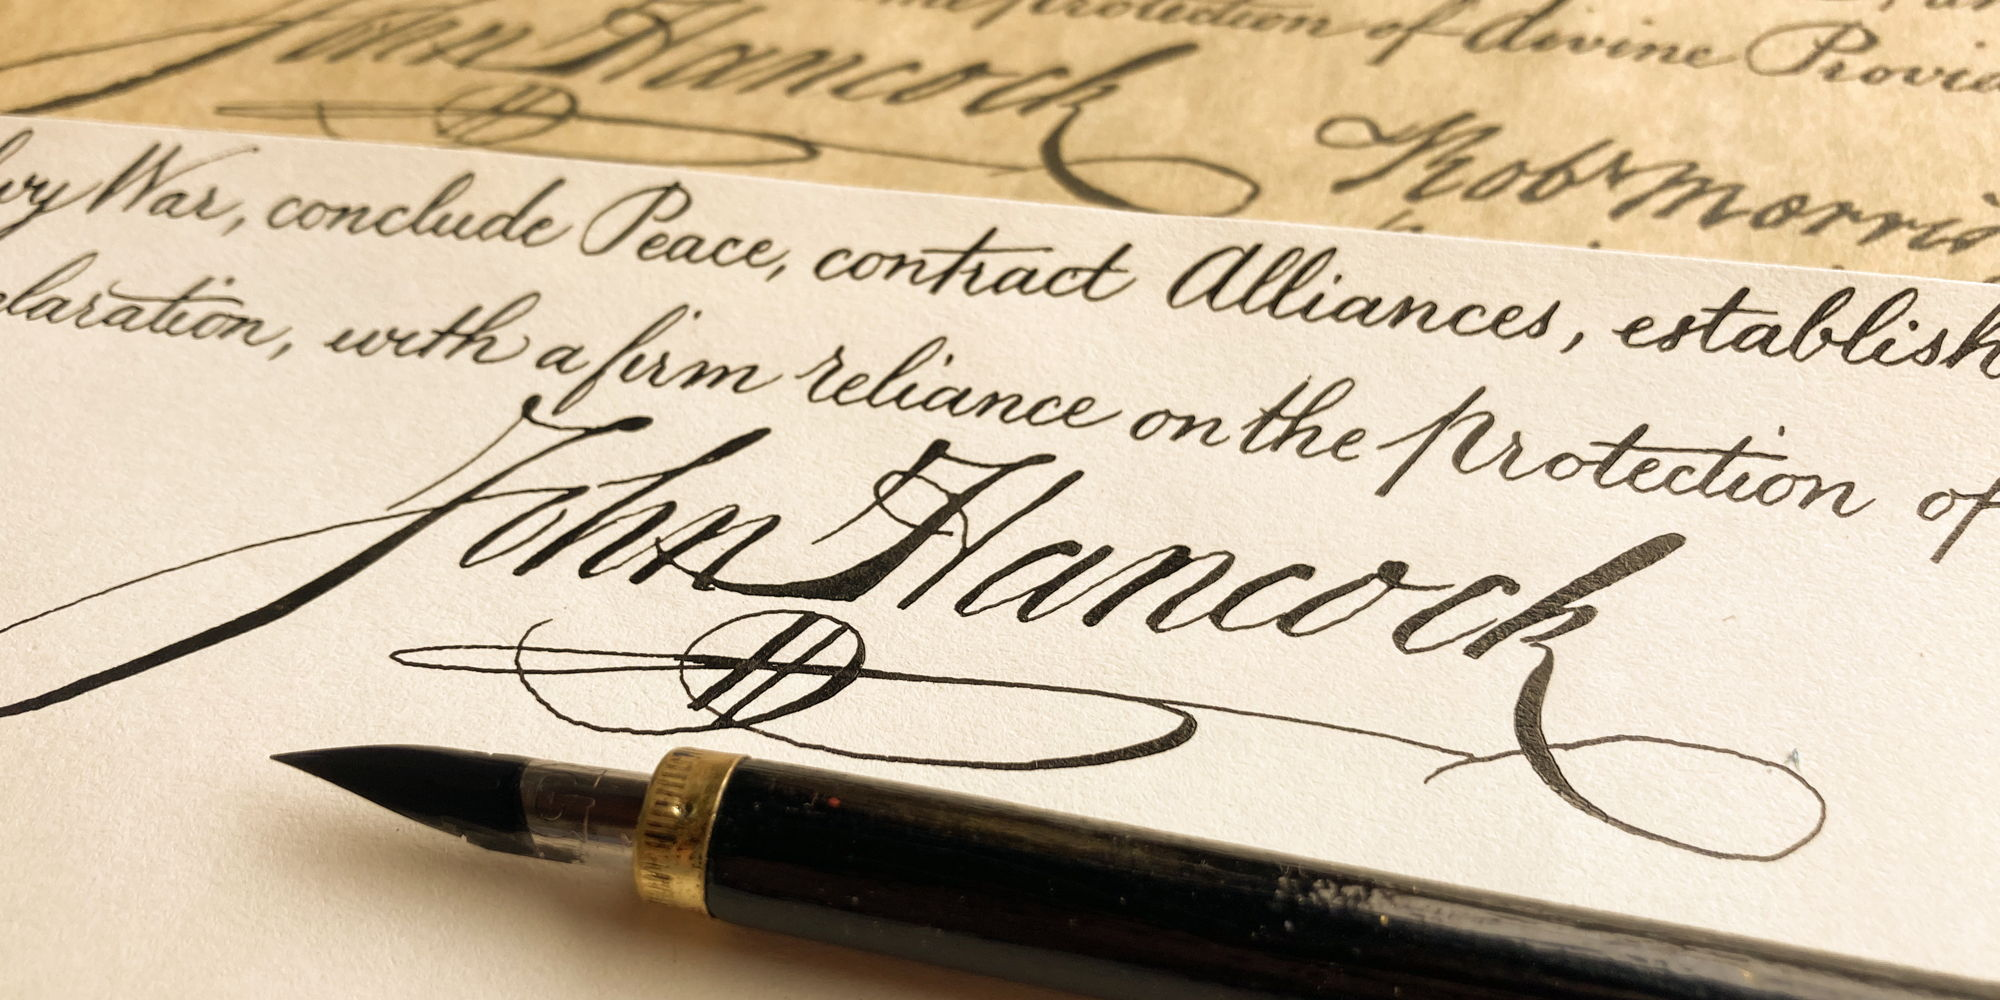 the protection of divine
John Hancock
Robt Morris
War, conclude Peace, contract Alliances, establish
with a firm reliance on the protection of
John Hancock